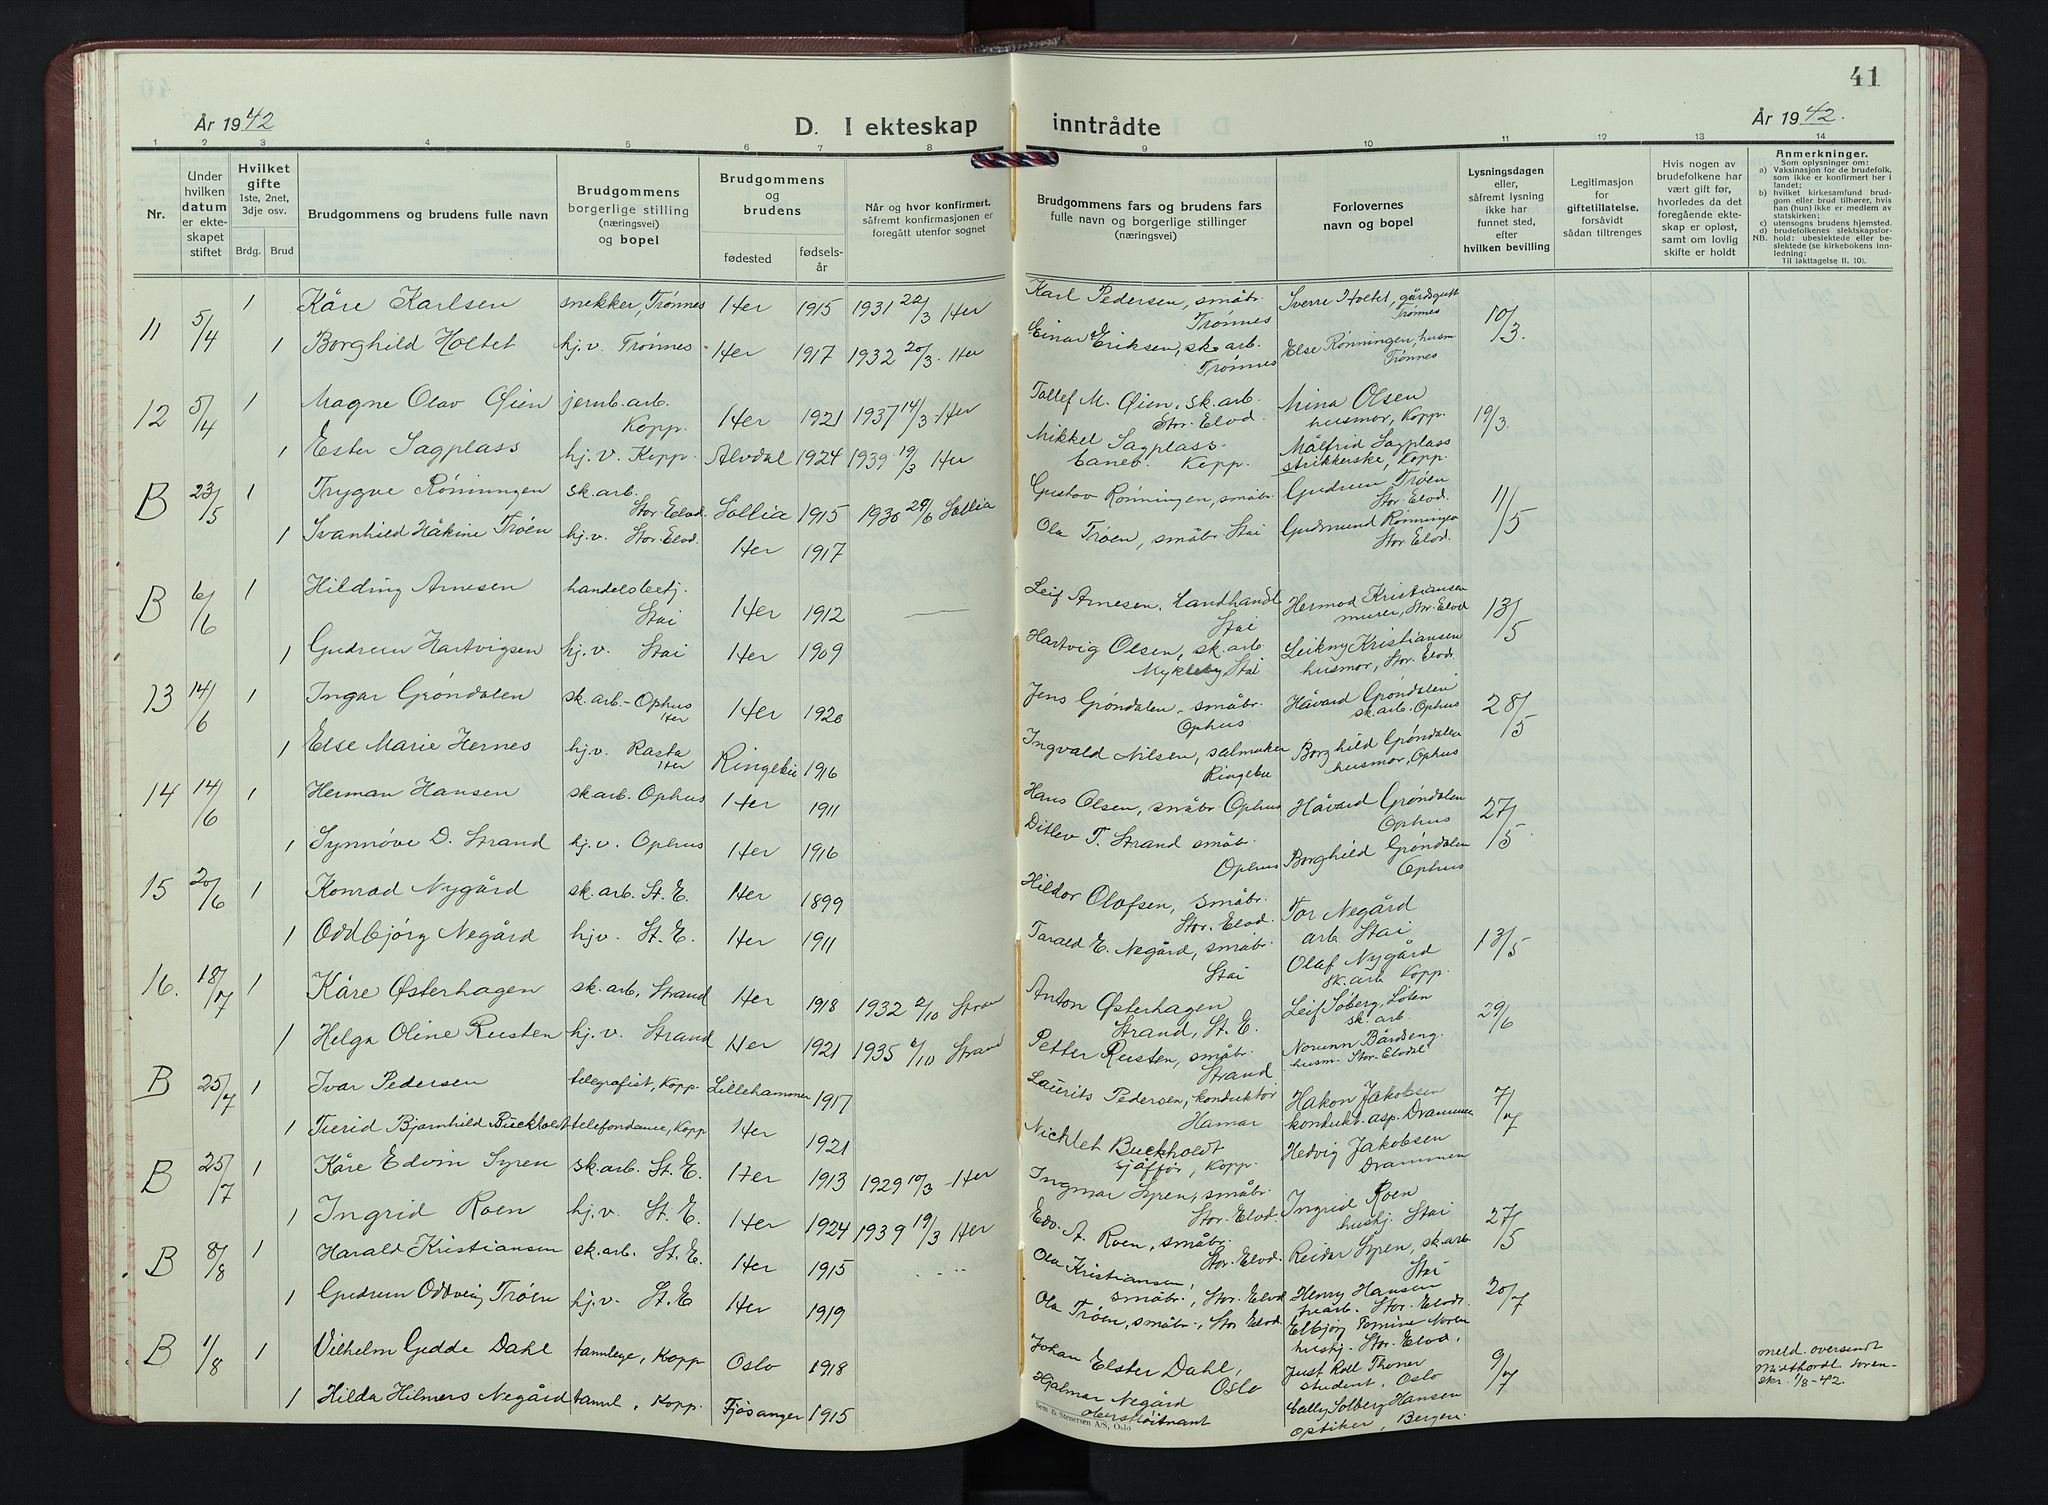 41
År 1942
D. I ekteskap inntrådte
År 1942.
1 2 3 4 5 6 7 8 9 10 11 12 13 14
Nr.
Under hvilken datum er ekteskapet stiftet
Hvilket gifte 1ste, 2net, 3dje osv.
Brdg. Brud
Brudgommens og brudens fulle navn
Brudgommens borgerlige stilling (næringsvei) og bopel
Brudgommens og brudens
fødested
fødselsår
Når og hvor konfirmert, såfremt konfirmasjonen er foregått utenfor sognet
Brudgommens fars og brudens fars fulle navn og borgerlige stillinger (næringsvei)
Forlovernes navn og bopel
Lysningsdagen eller, såfremt lysning ikke har funnet sted, efter hvilken bevilling
Legitimasjon for giftetillatelse, forsåvidt sådan tiltrenges
Hvis nogen av brudefolkene har vært gift før, hvorledes da det foregående ekteskap er opløst, samt om lovlig skifte er holdt
Anmerkninger.
Som oplysninger om:
a) Vaksinasjon for de brudefolk, som ikke er konfirmert her i landet;
b) hvilket kirkesamfund brudgom eller brud tilhører, hvis han (hun) ikke er medlem av statskirken;
c) utensogns brudens hjemsted.
d) brudefolkenes slektskapsforhold: ubeslektede eller beslektede (se kirkebokens innledning:
NB. Til iakttagelse II. 10).
11 5/4 1 Kåre Karlsen snekker, Trønnes Her 1915 1931 22/3 Her Karl Pedersen, småbr. Trønnes Sverre Holtet, gårdsgutt Trønnes 10/3.
1 Borghild Holtet hj.v. Trønnes Her 1917 1932 20/3. Her Einar Eriksen, sk.arb. Trønnes Else Rønningen, husm Trønnes
12 5/4 1 Magne Olav Øien jernb.arb. Kopp. Her 1921 1937 14/3 Her Tollef M. Øien, sk.arb. Stor-Elvd. Mina Olsen husmor, Kopp. 19/3.
1 Ester Sagplass hj.v. Kopp. Alvdal 1924 1939 19/3 Her Mikkel Sagplass baneb. Kopp. Målfrid Sagplass strikkerske, Kopp.
B 23/5 1 Trygve Rønningen sk.arb. Stor-Elvd. Sollia 1915 1930 29/6 Sollia Gustav Rønningen, småbr. Gudrun Trøen Stor-Elvd. 11/5
1 Svanhild Håkine Trøen hj.v. Stor-Elvd. Her 1917 Ola Trøen, småbr. Stai Gudmund Rønningen Stor-Elvd.
B 6/6 1 Hilding Arnesen handelsbetj. Stai Her 1912 — Leif Arnesen, Landhandl Stai Hermod Kristiansen murer, Stor-Elvd 13/5
1 Gudrun Hartvigsen hj.v. Stai Her 1909 Hartvig Olsen, sk.arb. Mykleby Stai Leikny Kristiansen husmor, Stor-Elvd.
13 14/6 1 Ingar Grøndalen sk.arb.- Ophus Her Her 1920 Jens Grøndalen, småbr. Ophus. Håvard Grøndalen sk.arb. Ophus 28/5
1 Else Marie Hernes hj.v. Rasta Her Ringebu 1916 Ingvald Nilsen, salmaker Ringebu Borghild Grøndalen husmor, Ophus
14 14/6 1 Herman Hansen sk.arb. Ophus Her 1911 Hans Olsen, småbr. Ophus Håvard Grøndalen Ophus 27/5
1 Synnøve D. Strand hj.v. Ophus Her 1916 Ditlev T. Strand småbr. Ophus Borghild Grøndalen Ophus
15 20/6 1 Konrad Nygård sk.arb. St. E. Her 1899 Hildor Olofsen, småbr. Stor-Elvd. Tor Negård arb Stai 13/5
1 Oddbjørg Negård hj.v. St. E. Her 1911 Tarald E. Negård, småbr. Stai Olaf Nygård sk.arb Kopp.
16. 18/7 1 Kåre Østerhagen sk.arb, Strand Her 1918 1932 2/10 Strand Anton Østerhagen Strand, St. E. Leif Søberg, Løten sk.arb. 29/6
1 Helga Oline Rusten hj.v. Strand Her 1921 1935 6/10 Strand Petter Rusten, småbr. Strand Norunn Bårdseng. husm. Stor-Elvdal
B 25/7 1 Ivar Pedersen telegrafist, Kopp. Lillehammer 1917 Laurits Pedersen, konduktør Hamar Håkon Jakobsen kondukt.asp. Drammen 7/7
1 Turid Bjørnhild Buckholdt telefondame, Kopp Her 1921 Nichlet Buckholdt sjåffør, Kopp. Hedvig Jakobsen Drammen
B 25/7 1 Kåre Edvin Syren sk.arb. St. E. Her 1913 1929 10/3 Her Ingmar Syren, småbr. Stor-Elvd. Ingrid Roen hushj. Stai 27/5
1 Ingrid Roen hj.v. St. E. Her 1924 1939 19/3 Her Edv. A. Roen, småbr. Stor-Elvd. Reidar Syren, sk.arb Stai
B 8/8 1 Harald Kristiansen sk.arb. St. E. Her 1915 Ola Kristiansen, småbr., Stor-Elvd Henry Hansen arb. Stor-Elvd. 20/7
1 Gudrun Oddveig Trøen hj.v. St. E Her 1919 Ola Trøen, småbr., Stor-Elvd. Elbjørg hushj. Stor-Elvd.
B 1/8 1 Vilhelm Gedde Dahl tannlege, Kopp Oslo 1918 Johan Elster Dahl, Oslo Just Roll Thoner student, Oslo 9/7 meld. oversendt Midthordl. Soren-skr. 1/8-42.
1 Hilda Hilmers Negård tannl, Kopp. Fjøsanger 1915 Hjalmar Negård oberstløitnant Cally Solberg Hansen optiker, Bergen.
Sem & Stenersen A/S, Oslo